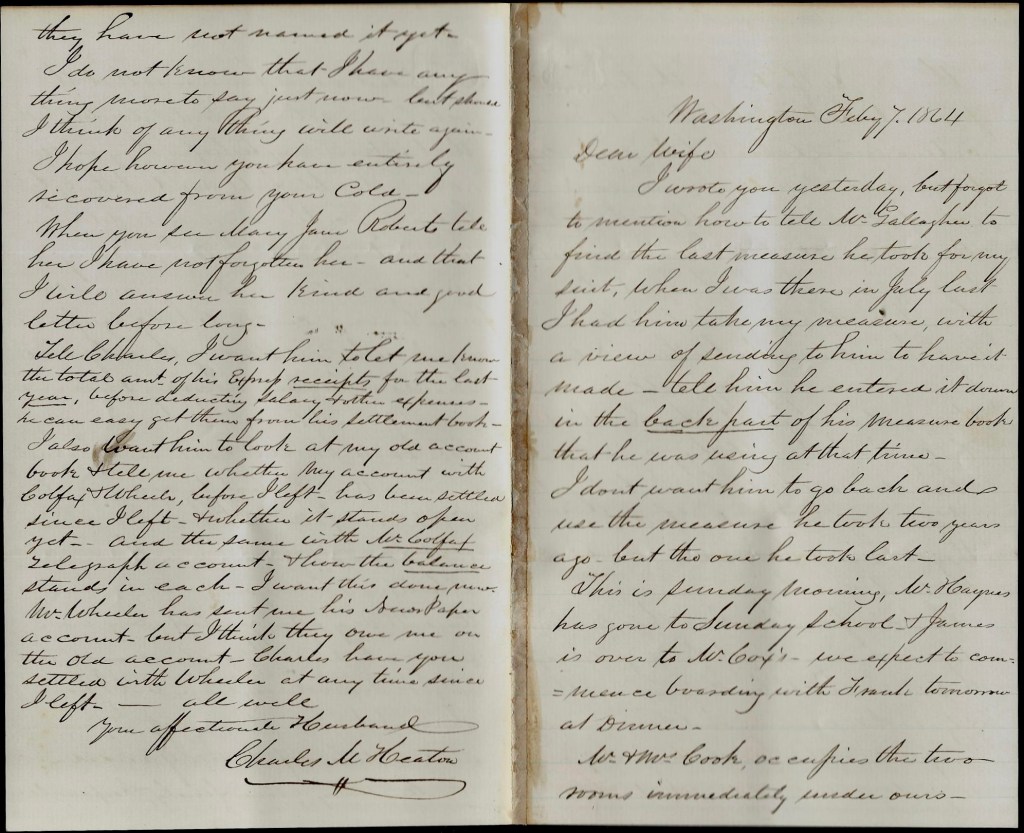 Washington Feby 7. 1864
Dear Wife
I wrote you yesterday, but forgot
to mention how to tell Mr Gallagher to
find the last measure he took for my
suit, When I was there in July last
I had him take my measure, with
a view of sending to him to have it
made - tell him he entered it down
in the back part of his measure book
that he was using at that time -
I dont want him to go back and
use the measure he took two years
ago - but the one he took last -
This is sunday morning, Mr Haynes
has gone to Sunday school - & James
is over to Mr Cox's - we expect to com=
=mence boarding with Frank tomorrow
at Dinner -
Mr & Mrs Cook, occupies the two
rooms immediately under ours -
they have not named it yet -
I do not know that I have any
thing more to say just now - but should
I think of any thing will write again -
I hope however you have entirely
recovered from your Cold -
When you see Mary Jane Roberts tell
her I have not forgotten her - and that
I will answer her kind and good
letter before long -
Tell Charles, I want him to let me know
the total amt. of his Express receipts for the last
year, before deducting salary & other expenses -
he can easy get them from his settlement book -
I also want him to look at my old account
book & tell me whether my account with
Colfax & Wheeler, before I left - has been settled
since I left - & whether it stands open
yet - and the same with Mr Colfax
Telegraph account - & how the balance
stands in each - I want this done now.
Mr Wheeler has sent me his News Paper
account - but I think they owe me on
the old account - Charles have you
settled with Wheeler at any time since
I left - — all well
Your affectionate Husband
Charles M Heaton